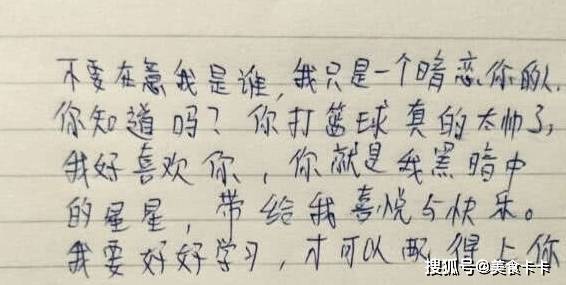 不要在意我是谁，我只是一个暗恋你的人.
你知道吗？你打篮球真的太帅了，
我好喜欢你，你就是我黑暗中
的星星，带给我喜悦与快乐。
我要好好学习，才可以配得上你
搜狐号@美食卡卡